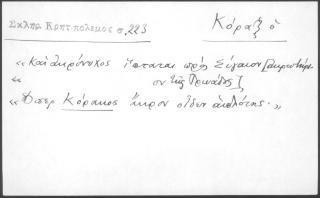 Σκληρ Κρητ. πόλεμος σ. 223
Κόραξ ὁ
« Καὶ ἀκρόνυχος ἵσταται πρὸς Σίγαιον [ἀκρωτήρι-
« ον τῆς Τρῳάδος]
« Ὅπερ Κόρακος ἄκρον οἶδεν ἁπλότης. »